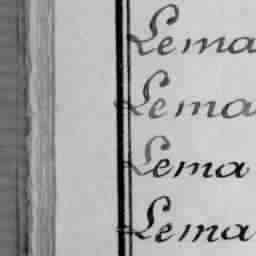 Lema
Lema
Lema
Lema